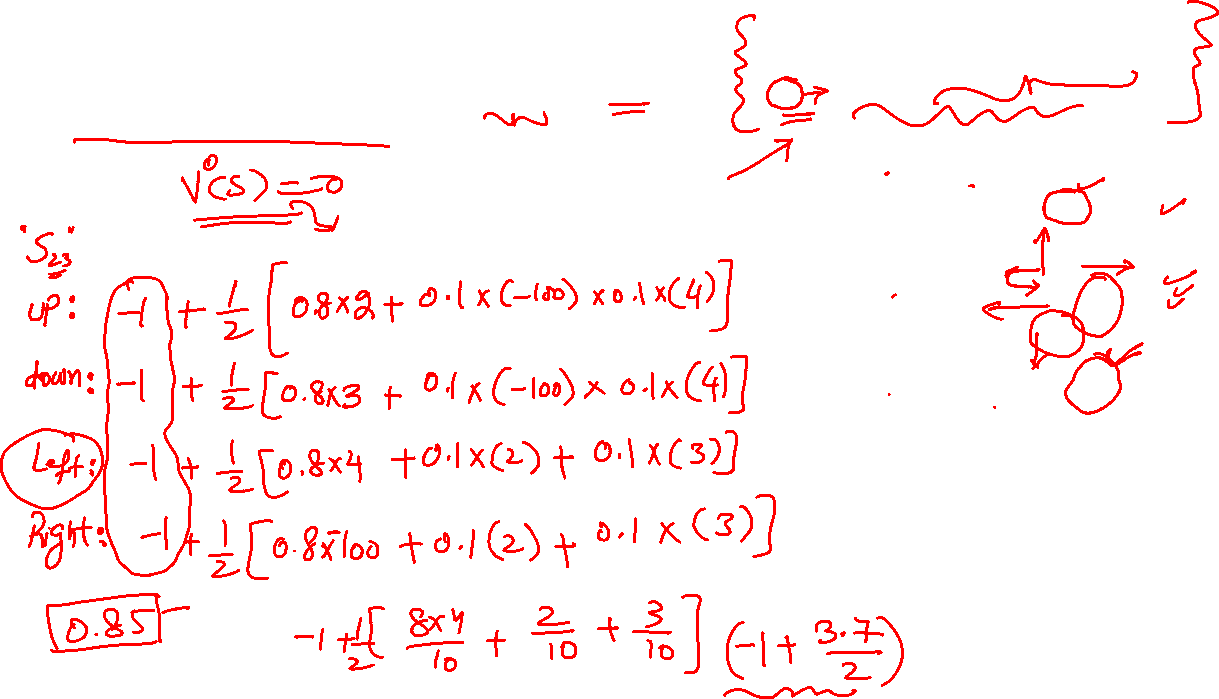 =
V⁰(S) = 0
"S₂₃"
UP: -1 + 1/2 [0.8×2 + 0.1×(-100) × 0.1×(4)]
down: -1 + 1/2 [0.8×3 + 0.1×(-100) × 0.1×(4)]
Left: -1 + 1/2 [0.8×4 + 0.1×(2) + 0.1×(3)]
Right: -1 + 1/2 [0.8×-100 + 0.1(2) + 0.1×(3)]
0.85 -1 + 1/2 [8×4/10 + 2/10 + 3/10] (-1 + 3.7/2)